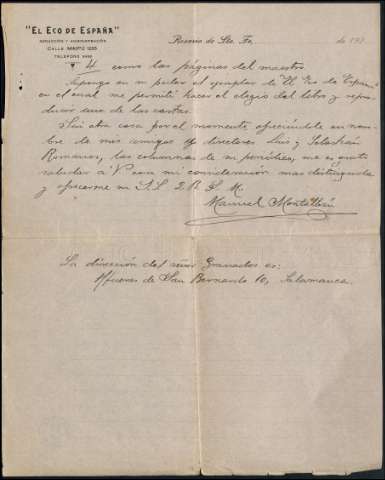 "EL ECO DE ESPAÑA"
REDACCIÓN Y ADMINISTRACIÓN
CALLE MAIPÚ 1255
TELÉFONO
Rosario de Sta. Fe, de 191
4 como las páginas del maestro.
Supongo en su poder el ejemplar de "El Eco de España"
en el cual me permití hacer el elogio del libro y repro-
ducir una de las cartas.
Sin otra cosa por el momento, ofreciéndole en nom-
bre de mis amigos y directores Luis y Sebastián
Romanos, las columnas de su periódico, me es grato
saludar a V. con mi consideración mas distinguida
y ofrecerme su S. S. Q. B. S. M.
Manuel
La dirección del señor Granados es:
Afueras de San Bernardo 10, Salamanca.